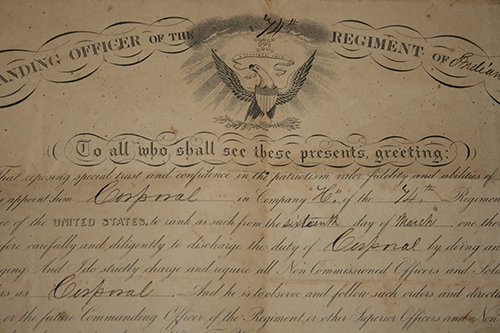 74th
ANDING OFFICER OF THE REGIMENT OF India
To all who shall see these presents, greeting:
hat reposing special trust and confidence in the patriotism valor, fidelity and abilities of
appoint him Corporal in Company "H" of the 74th Regimen
ce of the UNITED STATES, to rank as such from the sixteenth day of March one tho
efore carefully and diligently to discharge the duty of Corporal by doing an
ging. And I do strictly charge and require all Non Commissioned Officers and Sold
rs as Corporal And he is to observe and follow such orders and directi
or the future Commanding Officer of the Regiment, or other Superior Officers, and Non